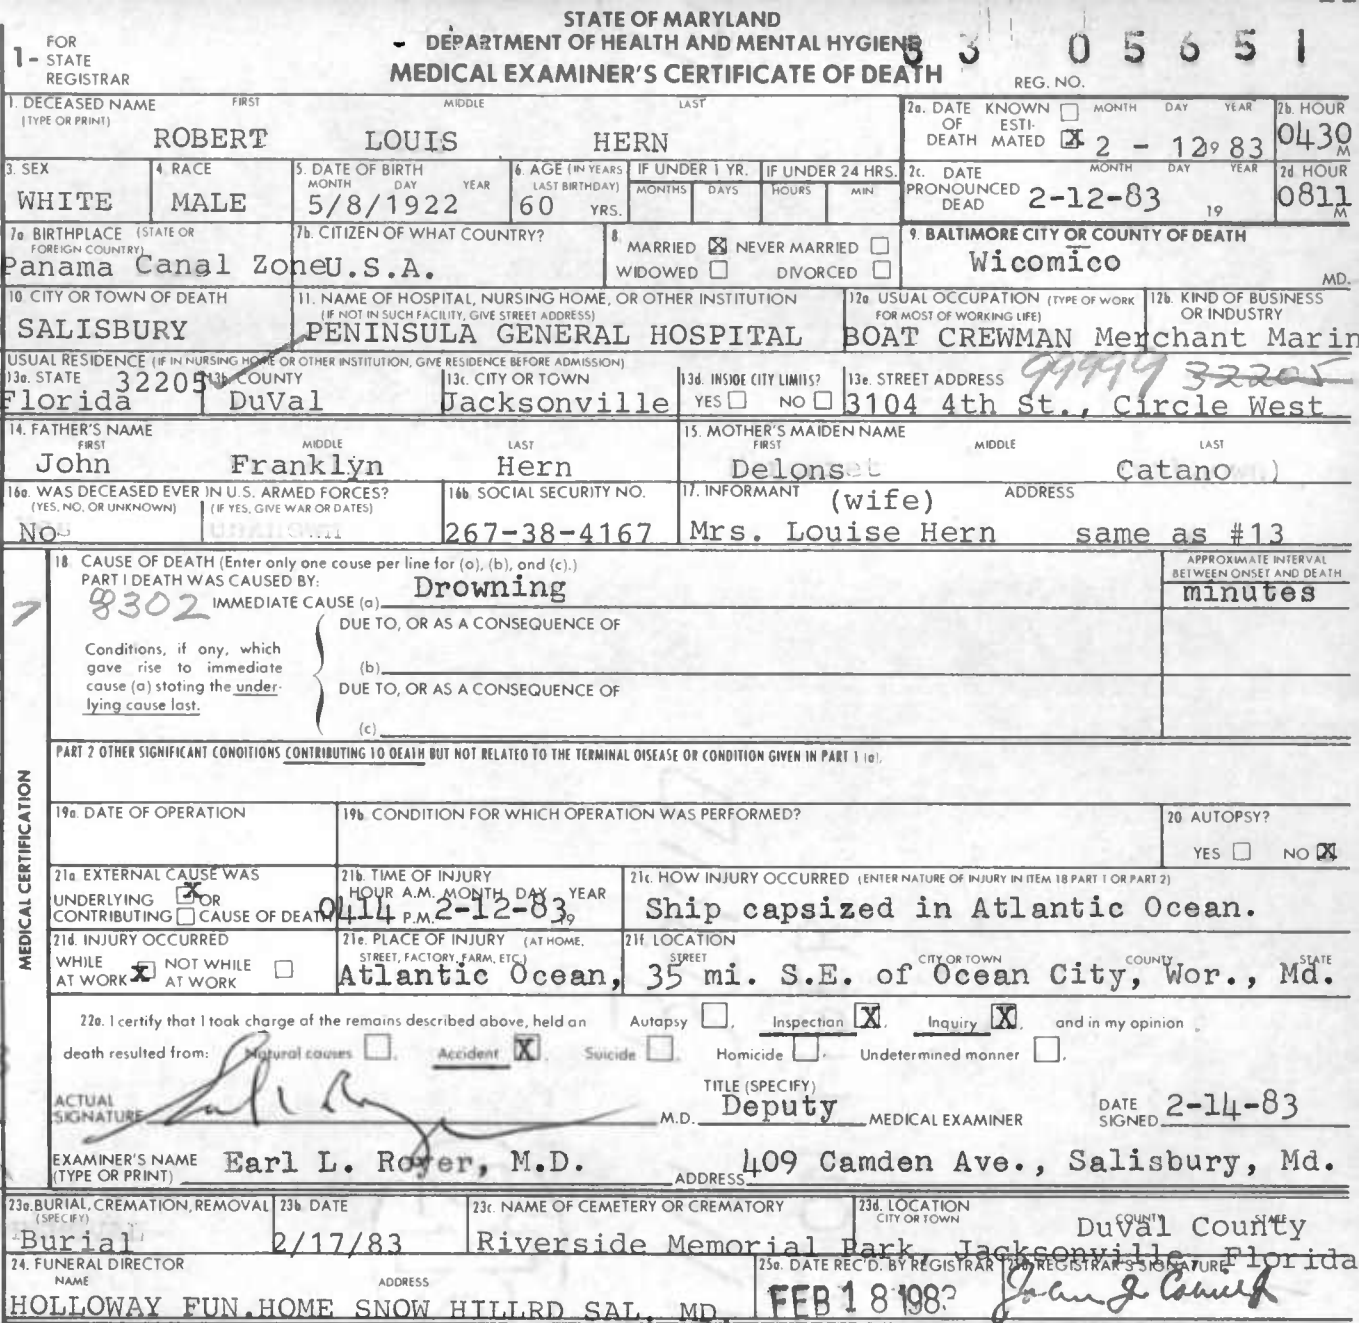 STATE OF MARYLAND
DEPARTMENT OF HEALTH AND MENTAL HYGIENE
MEDICAL EXAMINER'S CERTIFICATE OF DEATH
1- FOR STATE REGISTRAR
83 05651
REG. NO.
1. DECEASED NAME (TYPE OR PRINT) FIRST MIDDLE LAST
ROBERT LOUIS HERN
2a. DATE OF DEATH KNOWN ☐ ESTIMATED ☒ MONTH DAY YEAR
2 - 12 19 83
2b. HOUR
0430 M
3. SEX
WHITE
4. RACE
MALE
5. DATE OF BIRTH MONTH DAY YEAR
5/8/1922
6. AGE (IN YEARS LAST BIRTHDAY)
60 YRS.
IF UNDER 1 YR. MONTHS DAYS
IF UNDER 24 HRS. HOURS MIN
2c. DATE PRONOUNCED DEAD MONTH DAY YEAR
2-12-83 19
2d. HOUR
0811 M
7a. BIRTHPLACE (STATE OR FOREIGN COUNTRY)
Panama Canal Zone
7b. CITIZEN OF WHAT COUNTRY?
U.S.A.
8. MARRIED ☒ NEVER MARRIED ☐
WIDOWED ☐ DIVORCED ☐
9. BALTIMORE CITY OR COUNTY OF DEATH
Wicomico MD.
10. CITY OR TOWN OF DEATH
SALISBURY
11. NAME OF HOSPITAL, NURSING HOME, OR OTHER INSTITUTION
(IF NOT IN SUCH FACILITY, GIVE STREET ADDRESS)
PENINSULA GENERAL HOSPITAL
12a. USUAL OCCUPATION (TYPE OF WORK FOR MOST OF WORKING LIFE)
BOAT CREWMAN
12b. KIND OF BUSINESS OR INDUSTRY
Merchant Marin
USUAL RESIDENCE (IF IN NURSING HOME OR OTHER INSTITUTION, GIVE RESIDENCE BEFORE ADMISSION)
13a. STATE 32205
Florida
13b. COUNTY
DuVal
13c. CITY OR TOWN
Jacksonville
13d. INSIDE CITY LIMITS?
YES ☐ NO ☐
13e. STREET ADDRESS 99999 32205
3104 4th St., Circle West
14. FATHER'S NAME FIRST MIDDLE LAST
John Franklyn Hern
15. MOTHER'S MAIDEN NAME FIRST MIDDLE LAST
Delons Catano
16a. WAS DECEASED EVER IN U.S. ARMED FORCES?
(YES, NO, OR UNKNOWN) (IF YES, GIVE WAR OR DATES)
No
16b. SOCIAL SECURITY NO.
267-38-4167
17. INFORMANT (wife) ADDRESS
Mrs. Louise Hern same as #13
MEDICAL CERTIFICATION
18. CAUSE OF DEATH (Enter only one cause per line for (a), (b), and (c).)
PART I DEATH WAS CAUSED BY:
8302 IMMEDIATE CAUSE (a) Drowning
APPROXIMATE INTERVAL BETWEEN ONSET AND DEATH
minutes
DUE TO, OR AS A CONSEQUENCE OF
Conditions, if any, which gave rise to immediate cause (a) stating the underlying cause last.
(b)
DUE TO, OR AS A CONSEQUENCE OF
(c)
PART 2 OTHER SIGNIFICANT CONDITIONS CONTRIBUTING TO DEATH BUT NOT RELATED TO THE TERMINAL DISEASE OR CONDITION GIVEN IN PART 1 (a).
19a. DATE OF OPERATION
19b. CONDITION FOR WHICH OPERATION WAS PERFORMED?
20. AUTOPSY?
YES ☐ NO ☒
21a. EXTERNAL CAUSE WAS
UNDERLYING ☒ OR
CONTRIBUTING ☐ CAUSE OF DEATH
21b. TIME OF INJURY
HOUR A.M. MONTH DAY YEAR
0414 P.M. 2-12-83 19
21c. HOW INJURY OCCURRED (ENTER NATURE OF INJURY IN ITEM 18 PART 1 OR PART 2)
Ship capsized in Atlantic Ocean.
21d. INJURY OCCURRED
WHILE AT WORK ☒ NOT WHILE AT WORK ☐
21e. PLACE OF INJURY (AT HOME, STREET, FACTORY, FARM, ETC.)
Atlantic Ocean,
21f. LOCATION STREET CITY OR TOWN COUNTY STATE
35 mi. S.E. of Ocean City, Wor., Md.
22a. I certify that I took charge of the remains described above, held an Autopsy ☐, Inspection ☒, Inquiry ☒, and in my opinion
death resulted from: Natural causes ☐, Accident ☒, Suicide ☐, Homicide ☐, Undetermined manner ☐.
ACTUAL SIGNATURE M.D.
TITLE (SPECIFY)
Deputy MEDICAL EXAMINER
DATE SIGNED 2-14-83
EXAMINER'S NAME (TYPE OR PRINT) Earl L. Royer, M.D.
ADDRESS 409 Camden Ave., Salisbury, Md.
23a. BURIAL, CREMATION, REMOVAL (SPECIFY)
Burial
23b. DATE
2/17/83
23c. NAME OF CEMETERY OR CREMATORY
Riverside Memorial Park,
23d. LOCATION CITY OR TOWN COUNTY STATE
DuVal County
Jacksonville, Florida
24. FUNERAL DIRECTOR
NAME ADDRESS
HOLLOWAY FUN.HOME SNOW HILLRD SAL. MD.
25a. DATE REC'D. BY REGISTRAR
FEB 18 1983
25b. REGISTRAR'S SIGNATURE